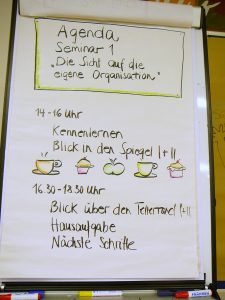 Agenda
Seminar 1
"Die Sicht auf die
eigene Organisation"
14-16 Uhr
Kennenlernen
Blick in den Spiegel I+II
16.30-18.30 Uhr
Blick über den Tellerrand I+II
Hausaufgabe
Nächste Schritte